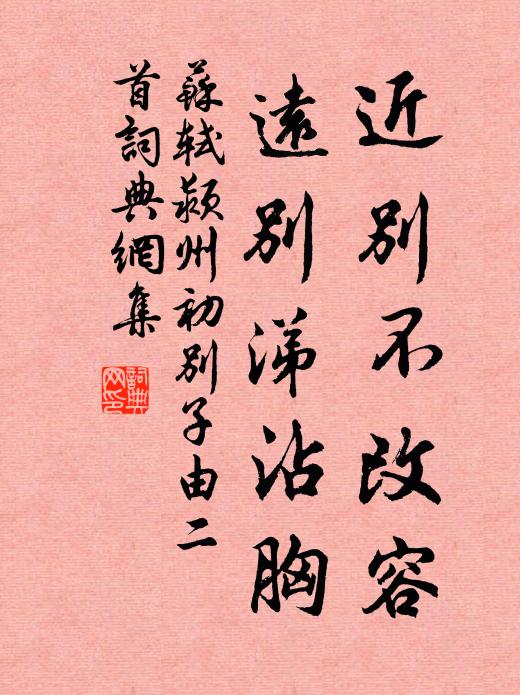 近別不改容
遠別涕沾胸
蘇軾潁州初別子由二
首詞典網集
詞典
網印